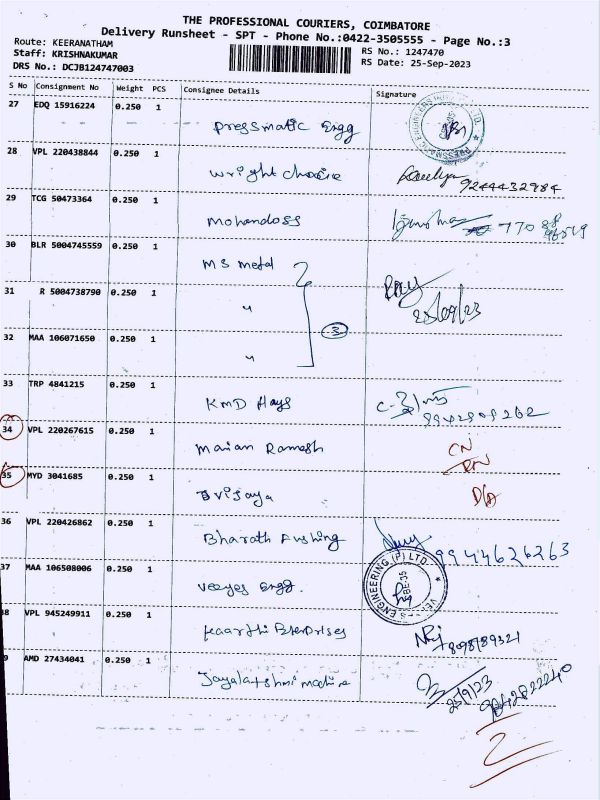 THE PROFESSIONAL COURIERS, COIMBATORE
Delivery Runsheet - SPT - Phone No.:0422-3505555 - Page No.:3
Route: KEERANATHAM
Staff: KRISHNAKUMAR
DRS No.: DCJB124747003
RS No.: 1247470
RS Date: 25-Sep-2023
S No Consignment No Weight PCS Consignee Details Signature
27 EDQ 15916224 0.250 1 Pressmatic Engg
28 VPL 220438844 0.250 1 Wright Choice 9244432984
29 TCG 50473364 0.250 1 Mohandoss
30 BLR 5004745559 0.250 1 MS Metal
31 R 5004738790 0.250 1 "
25/09/23
3
32 MAA 106071650 0.250 1 "
33 TRP 4841215 0.250 1 KMD Hays
34 VPL 220267615 0.250 1 Marian Ramesh CN
35 MYD 3041685 0.250 1 Srijaya
36 VPL 220426862 0.250 1 Bharath 9944626263
37 MAA 106508006 0.250 1 Veeyes Engg.
ENGINEERING (P) LTD
8 VPL 945249911 0.250 1 8098189321
9 AMD 27434041 0.250 1 25/9/23
2